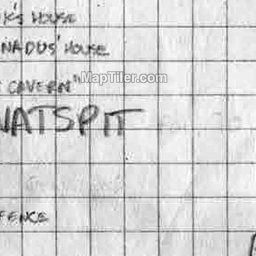 K'S HOUSE
NADUS' HOUSE
CAVERN"
MapTiler.com
WATSPIT
FENCE